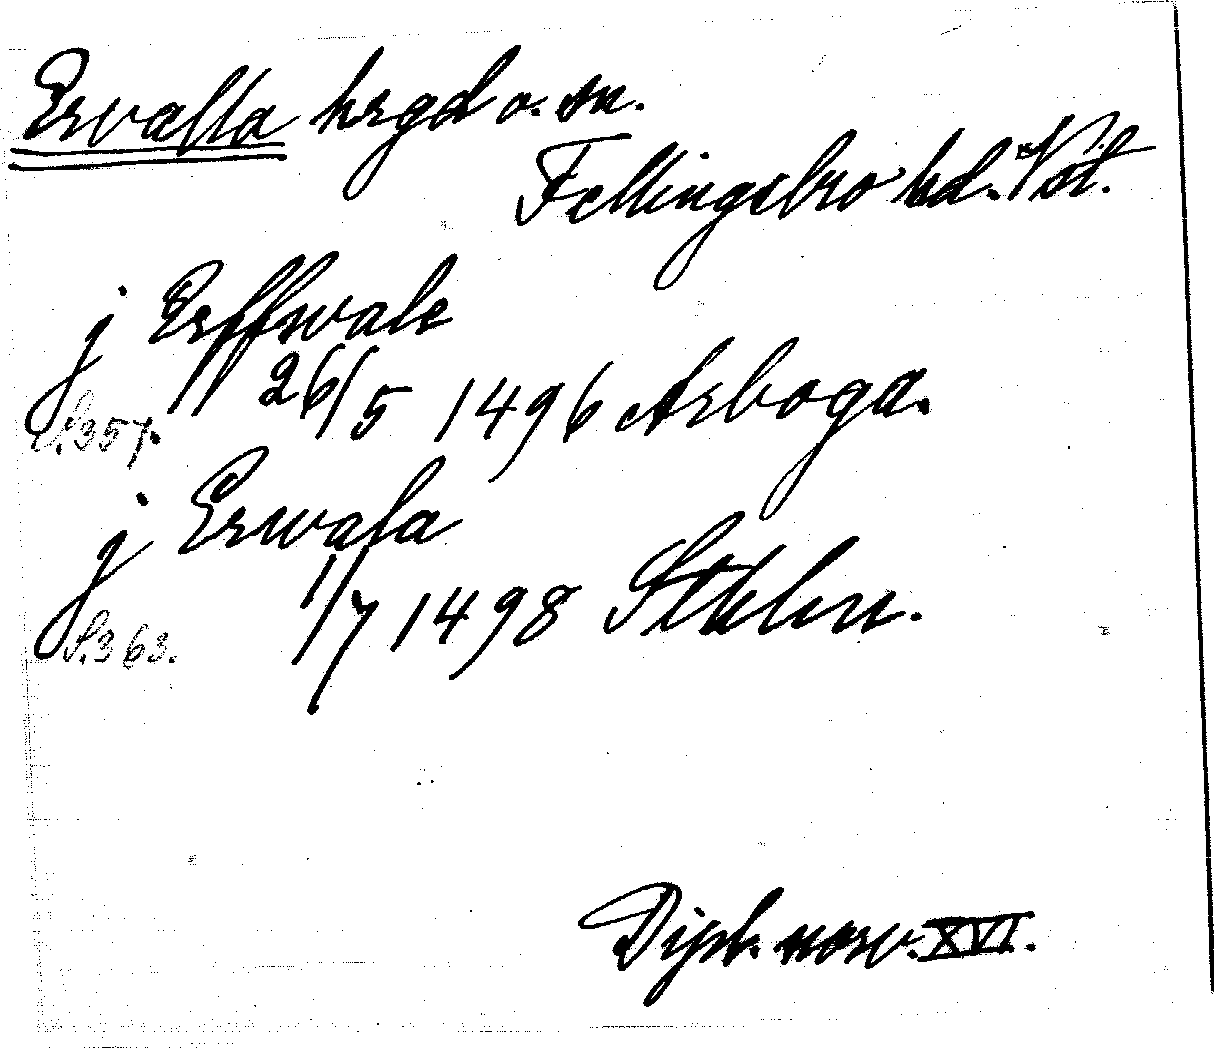 Ervalla hrgd o. sn.
Fellingsbro hd. Vstl.
j Erffwale
26/5 1496 Arboga.
S. 357.
j Erwala
1/7 1498 Sthlm.
S. 363.
Dipl. norv. XVI.